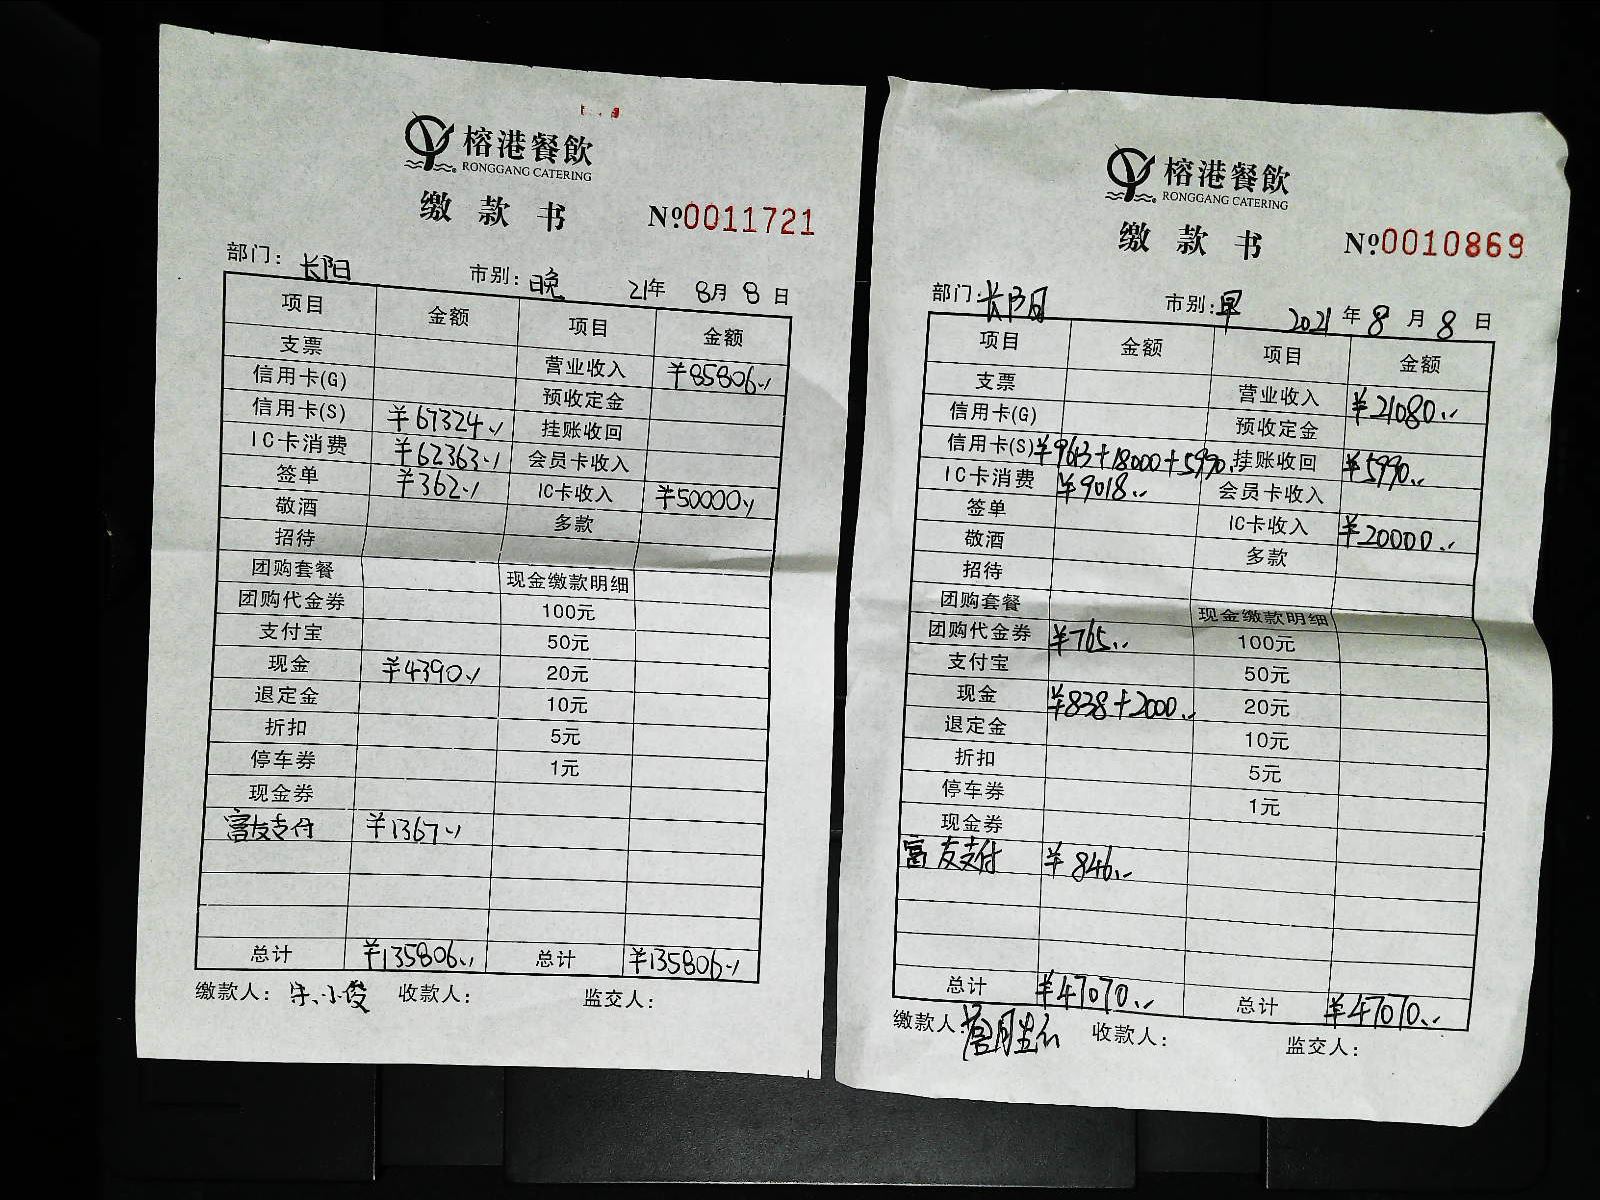 榕港餐飲
RONGGANG CATERING
缴款书
No 0011721
部门：长阳 市别：晚 21年 8月 8日
项目 金额 项目 金额
支票 营业收入 ¥85806
信用卡(G) 预收定金
信用卡(S) ¥67324 挂账收回
IC卡消费 ¥62363 会员卡收入
签单 ¥362 IC卡收入 ¥50000
敬酒 多款
招待
团购套餐 现金缴款明细
团购代金券 100元
支付宝 50元
现金 ¥4390 20元
退定金 10元
折扣 5元
停车券 1元
现金券
富友支付 ¥1367
总计 ¥135806 总计 ¥135806
缴款人： 收款人： 监交人：
榕港餐飲
RONGGANG CATERING
缴款书
No 0010869
部门：长阳 市别：早 2021年 8月 8日
项目 金额 项目 金额
支票 营业收入 ¥21080
信用卡(G) 预收定金
信用卡(S) ¥9613+18000+5990 挂账收回 ¥5990
IC卡消费 ¥9018 会员卡收入
签单 IC卡收入 ¥20000
敬酒 多款
招待
团购套餐 现金缴款明细
团购代金券 ¥765 100元
支付宝 50元
现金 ¥838+2000 20元
退定金 10元
折扣 5元
停车券 1元
现金券
富友支付 ¥846
总计 ¥47070 总计 ¥47070
缴款人： 收款人： 监交人：